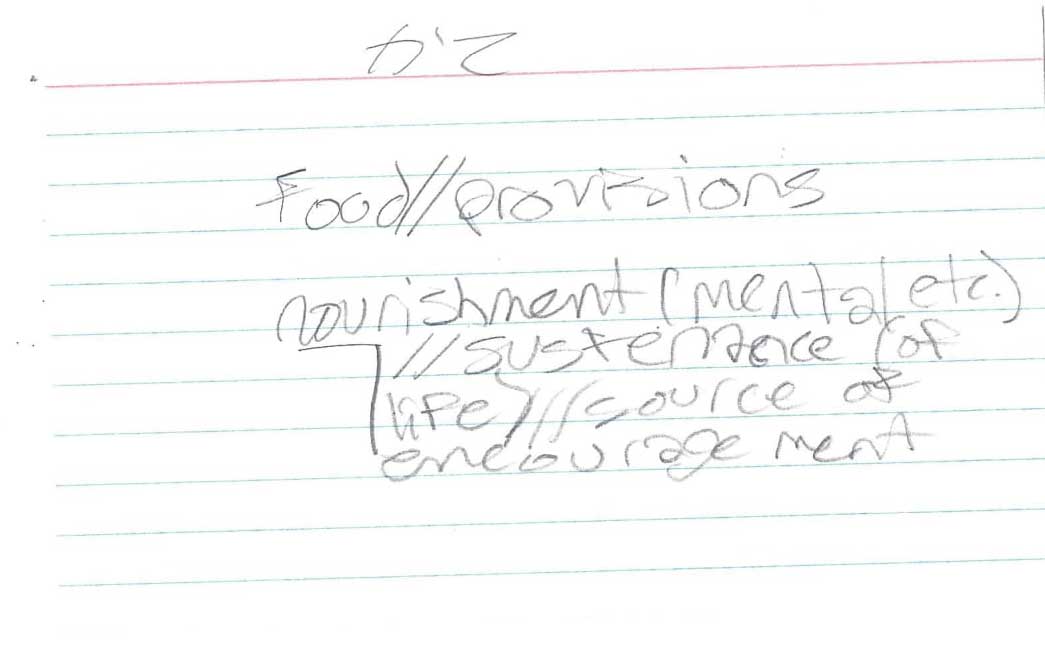 かて
food//provisions
nourishment (mental etc.)
//sustenance (of
life)//source of
encouragement